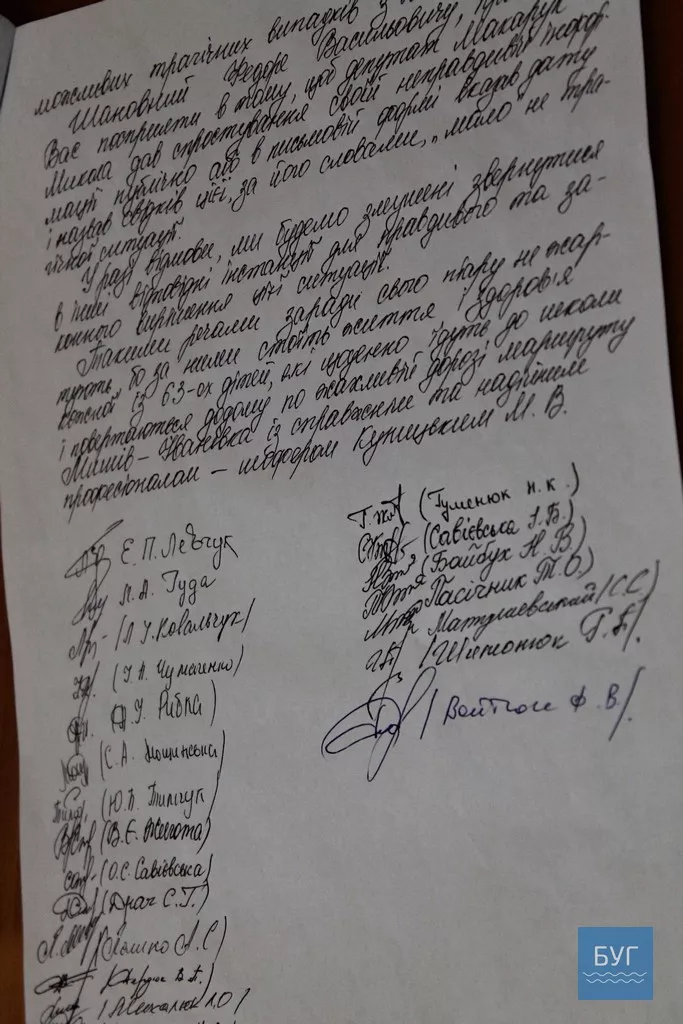 можливих трагічних випадків з
Шановний Федоре Васильовичу,
Вас посприяти в тому, щоб депутат Макарук
Микола дав спростування своїй неправдивій інфор-
мації публічно або в письмовій формі вказав дату
і назвав свідків цієї, за його словами, "мало не тра-
гічної ситуації.
У разі відмови, ми будемо змушені звернутися
в інші відповідні інстанції для правдивого та за-
конного вирішення цієї ситуації.
Такими речами заради свого піару не жар-
тують, бо за ними стоїть життя і здоров'я
кожної із 63-ох дітей, які щоденно їдуть до школи
і повертаються додому по жахливій дорозі маршруту
Мишів - Іванівка із справжнім та надійним
професіоналом - шофером Куницьким М. В.
Є. П. Левчук
Л. А. Гуда
(Л. У. Ковальчук)
(Т. А. Чумаченко)
Рибка
(С. А. Мощинська)
(Ю. В. Тимчук)
(В. Є. Жигота)
(О. С. Савієвська)
(Драч С. Г.)
(Сашко Л. С)
(Гуменюк Н. К.)
(Савієвська І. Б.)
(Байбух Н. В)
Пасічник Т. О.
Матушевський (С. С)
Войтюк Ф. В.
БУГ